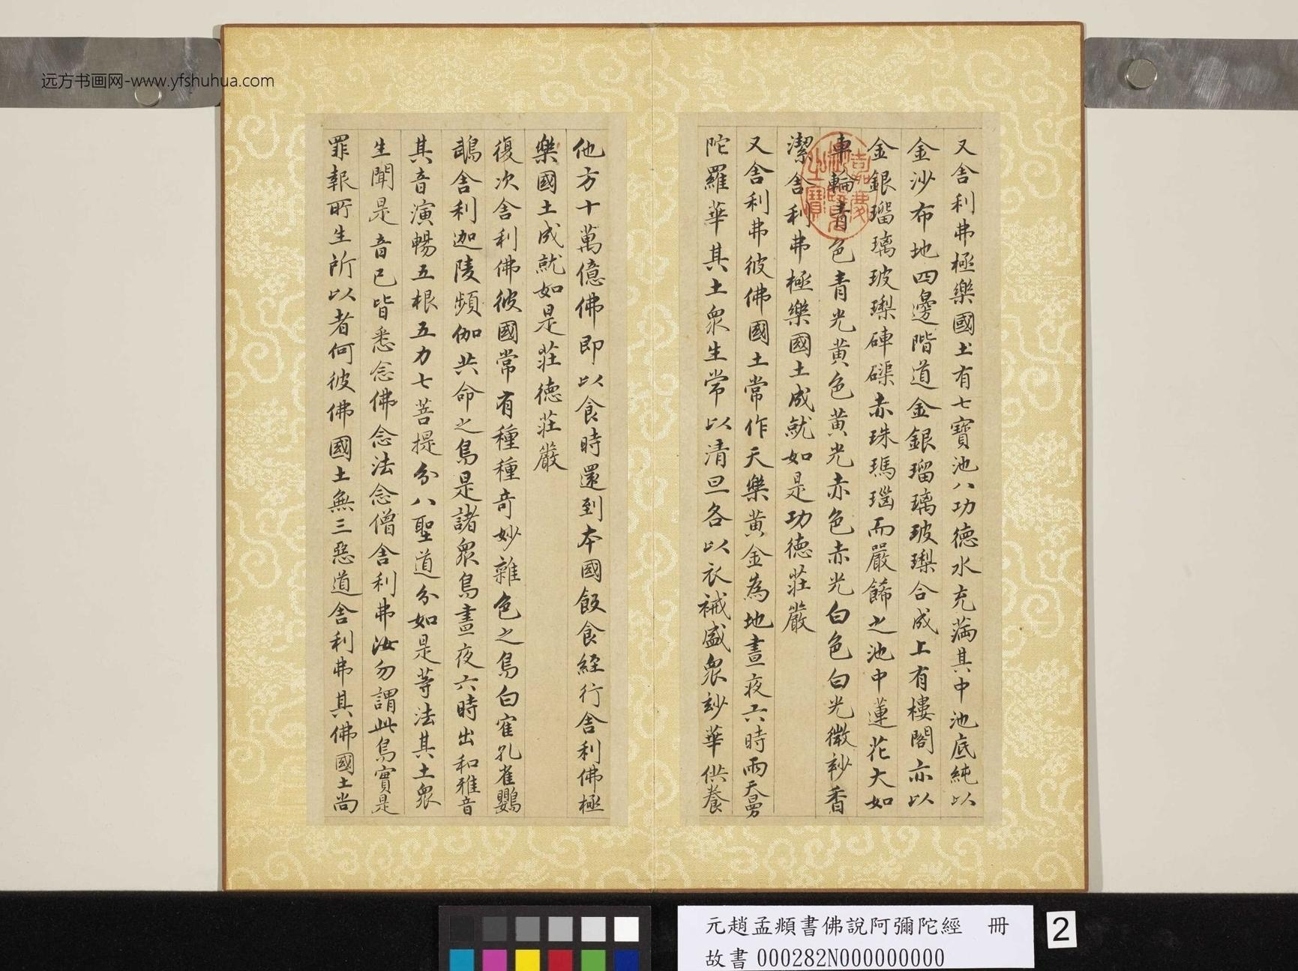 远方书画网-www.yfshuhua.com
又舍利弗極樂國土有七寶池八功德水充滿其中池底純以
金沙布地四邊階道金銀瑠璃玻瓈合成上有樓閣亦以
金銀瑠璃玻瓈硨磲赤珠瑪瑙而嚴飾之池中蓮花大如
車輪青色青光黃色黃光赤色赤光白色白光微玅香
潔舍利弗極樂國土成就如是功德莊嚴
又舍利弗彼佛國土常作天樂黃金為地晝夜六時雨天曼
陀羅華其土衆生常以清旦各以衣裓盛衆玅華供養
他方十萬億佛即以食時還到本國飯食經行舍利佛極
樂國土成就如是莊德莊嚴
復次舍利佛彼國常有種種奇妙雜色之鳥白寉孔雀鸚
鵡舍利迦陵頻伽共命之鳥是諸衆鳥晝夜六時出和雅音
其音演暢五根五力七菩提分八聖道分如是等法其土衆
生聞是音已皆悉念佛念法念僧舍利弗汝勿謂此鳥實是
罪報所生所以者何彼佛國土無三惡道舍利弗其佛國土尚
元趙孟頫書佛說阿彌陀經 冊
故書 000282N000000000
2